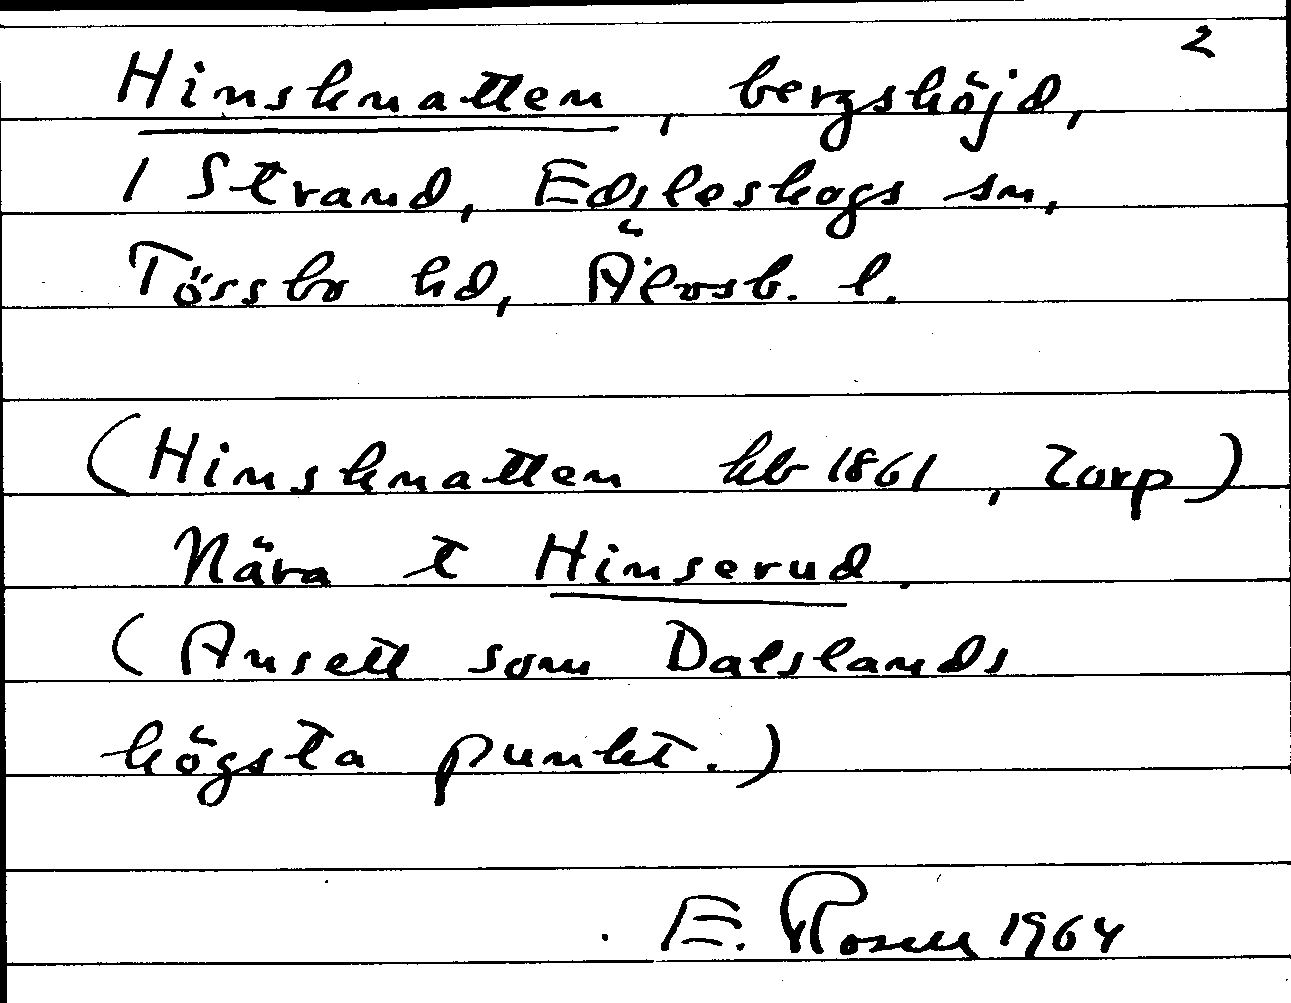 2
Hinsknatten, bergshöjd,
1 Strand, Edsleskogs sn,
Tössbo hd, Älvsb. l.
(Hinsknatten kb 1861, Torp)
Nära t Hinserud.
(Ansett som Dalslands
högsta punkt.)
E. Rosell 1964